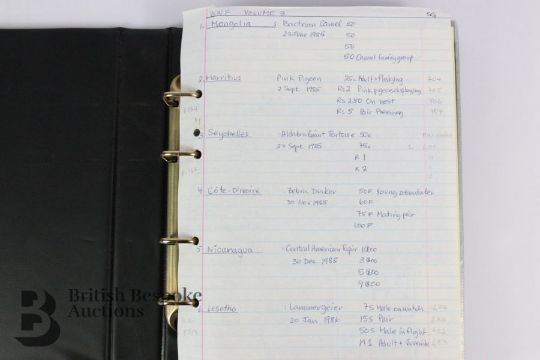 WWF VOLUME 3
1. Mongolia : Bactrian Camel 50
1985 50
50
50 Camel family group
2. Mauritius Pink Pigeon 25c Adult + fledgling 704
2 Sept. 1985 Rs 2 Pink pigeon displaying 705
Rs 2.50 On nest 706
Rs 5 Pair Preening 707
3. Seychelles : Aldabra Giant Tortoise 50c
27 Sept. 1985 75c
R 1
R 2
4. Côte-D'ivoire : Zebra Duiker 50F
30 Nov 1985 60F
75F Mating pair
100F
5. Nicaragua : Central American Tapir 1$00
30 Dec 1985 3$00
5$00
9$00
6. Lesotho : Lammergeier 7S Male on watch
20 Jan 1986 15S Pair
50S Male in flight
M1 Adult + Juvenile
British Bespoke
Auctions